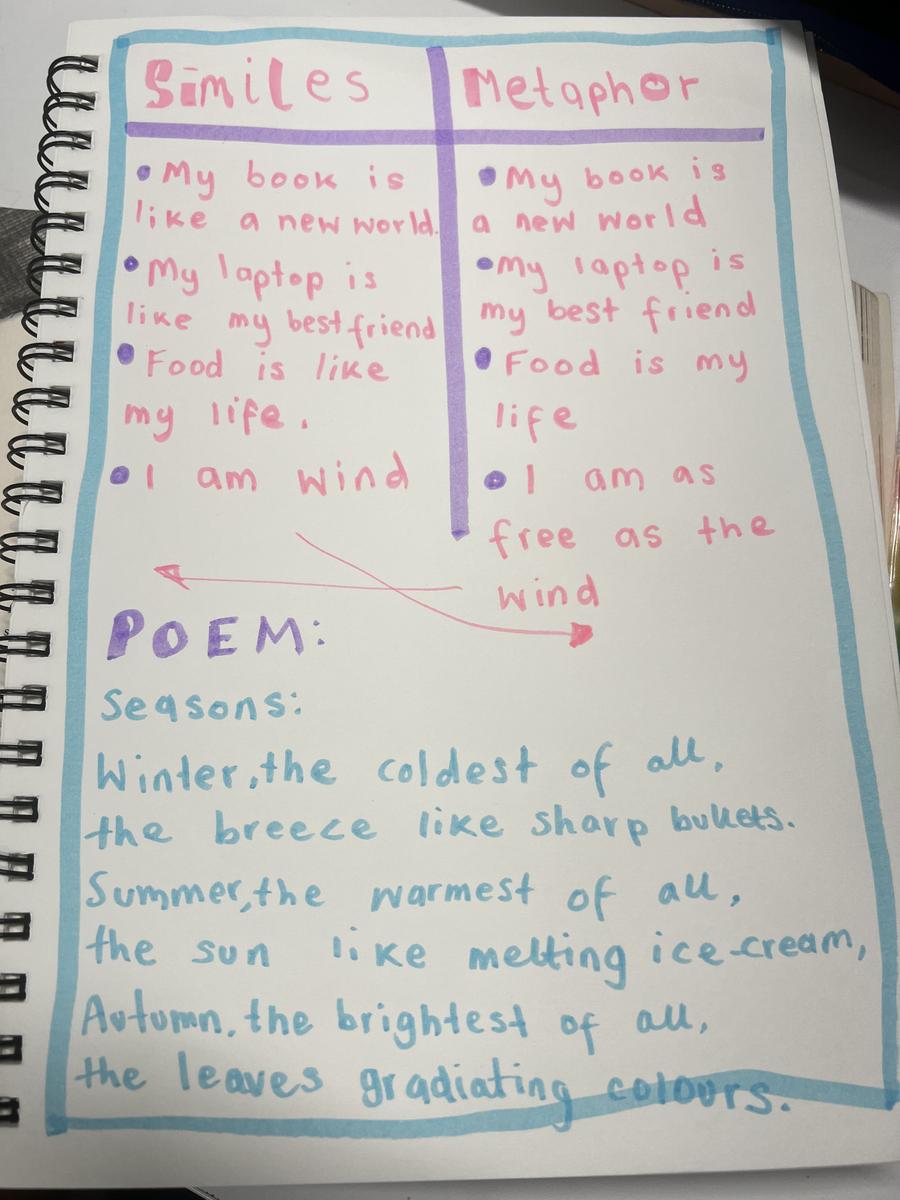 Similes
My book is
like a new world.
My laptop is
like my best friend
Food is like
my life.
I am wind
Metaphor
My book is
a new world
My laptop is
my best friend
Food is my
life
I am as
free as the
wind
POEM:
Seasons:
Winter, the coldest of all,
the breece like sharp bullets.
Summer, the warmest of all,
the sun like melting ice-cream,
Autumn, the brightest of all,
the leaves gradiating colours.